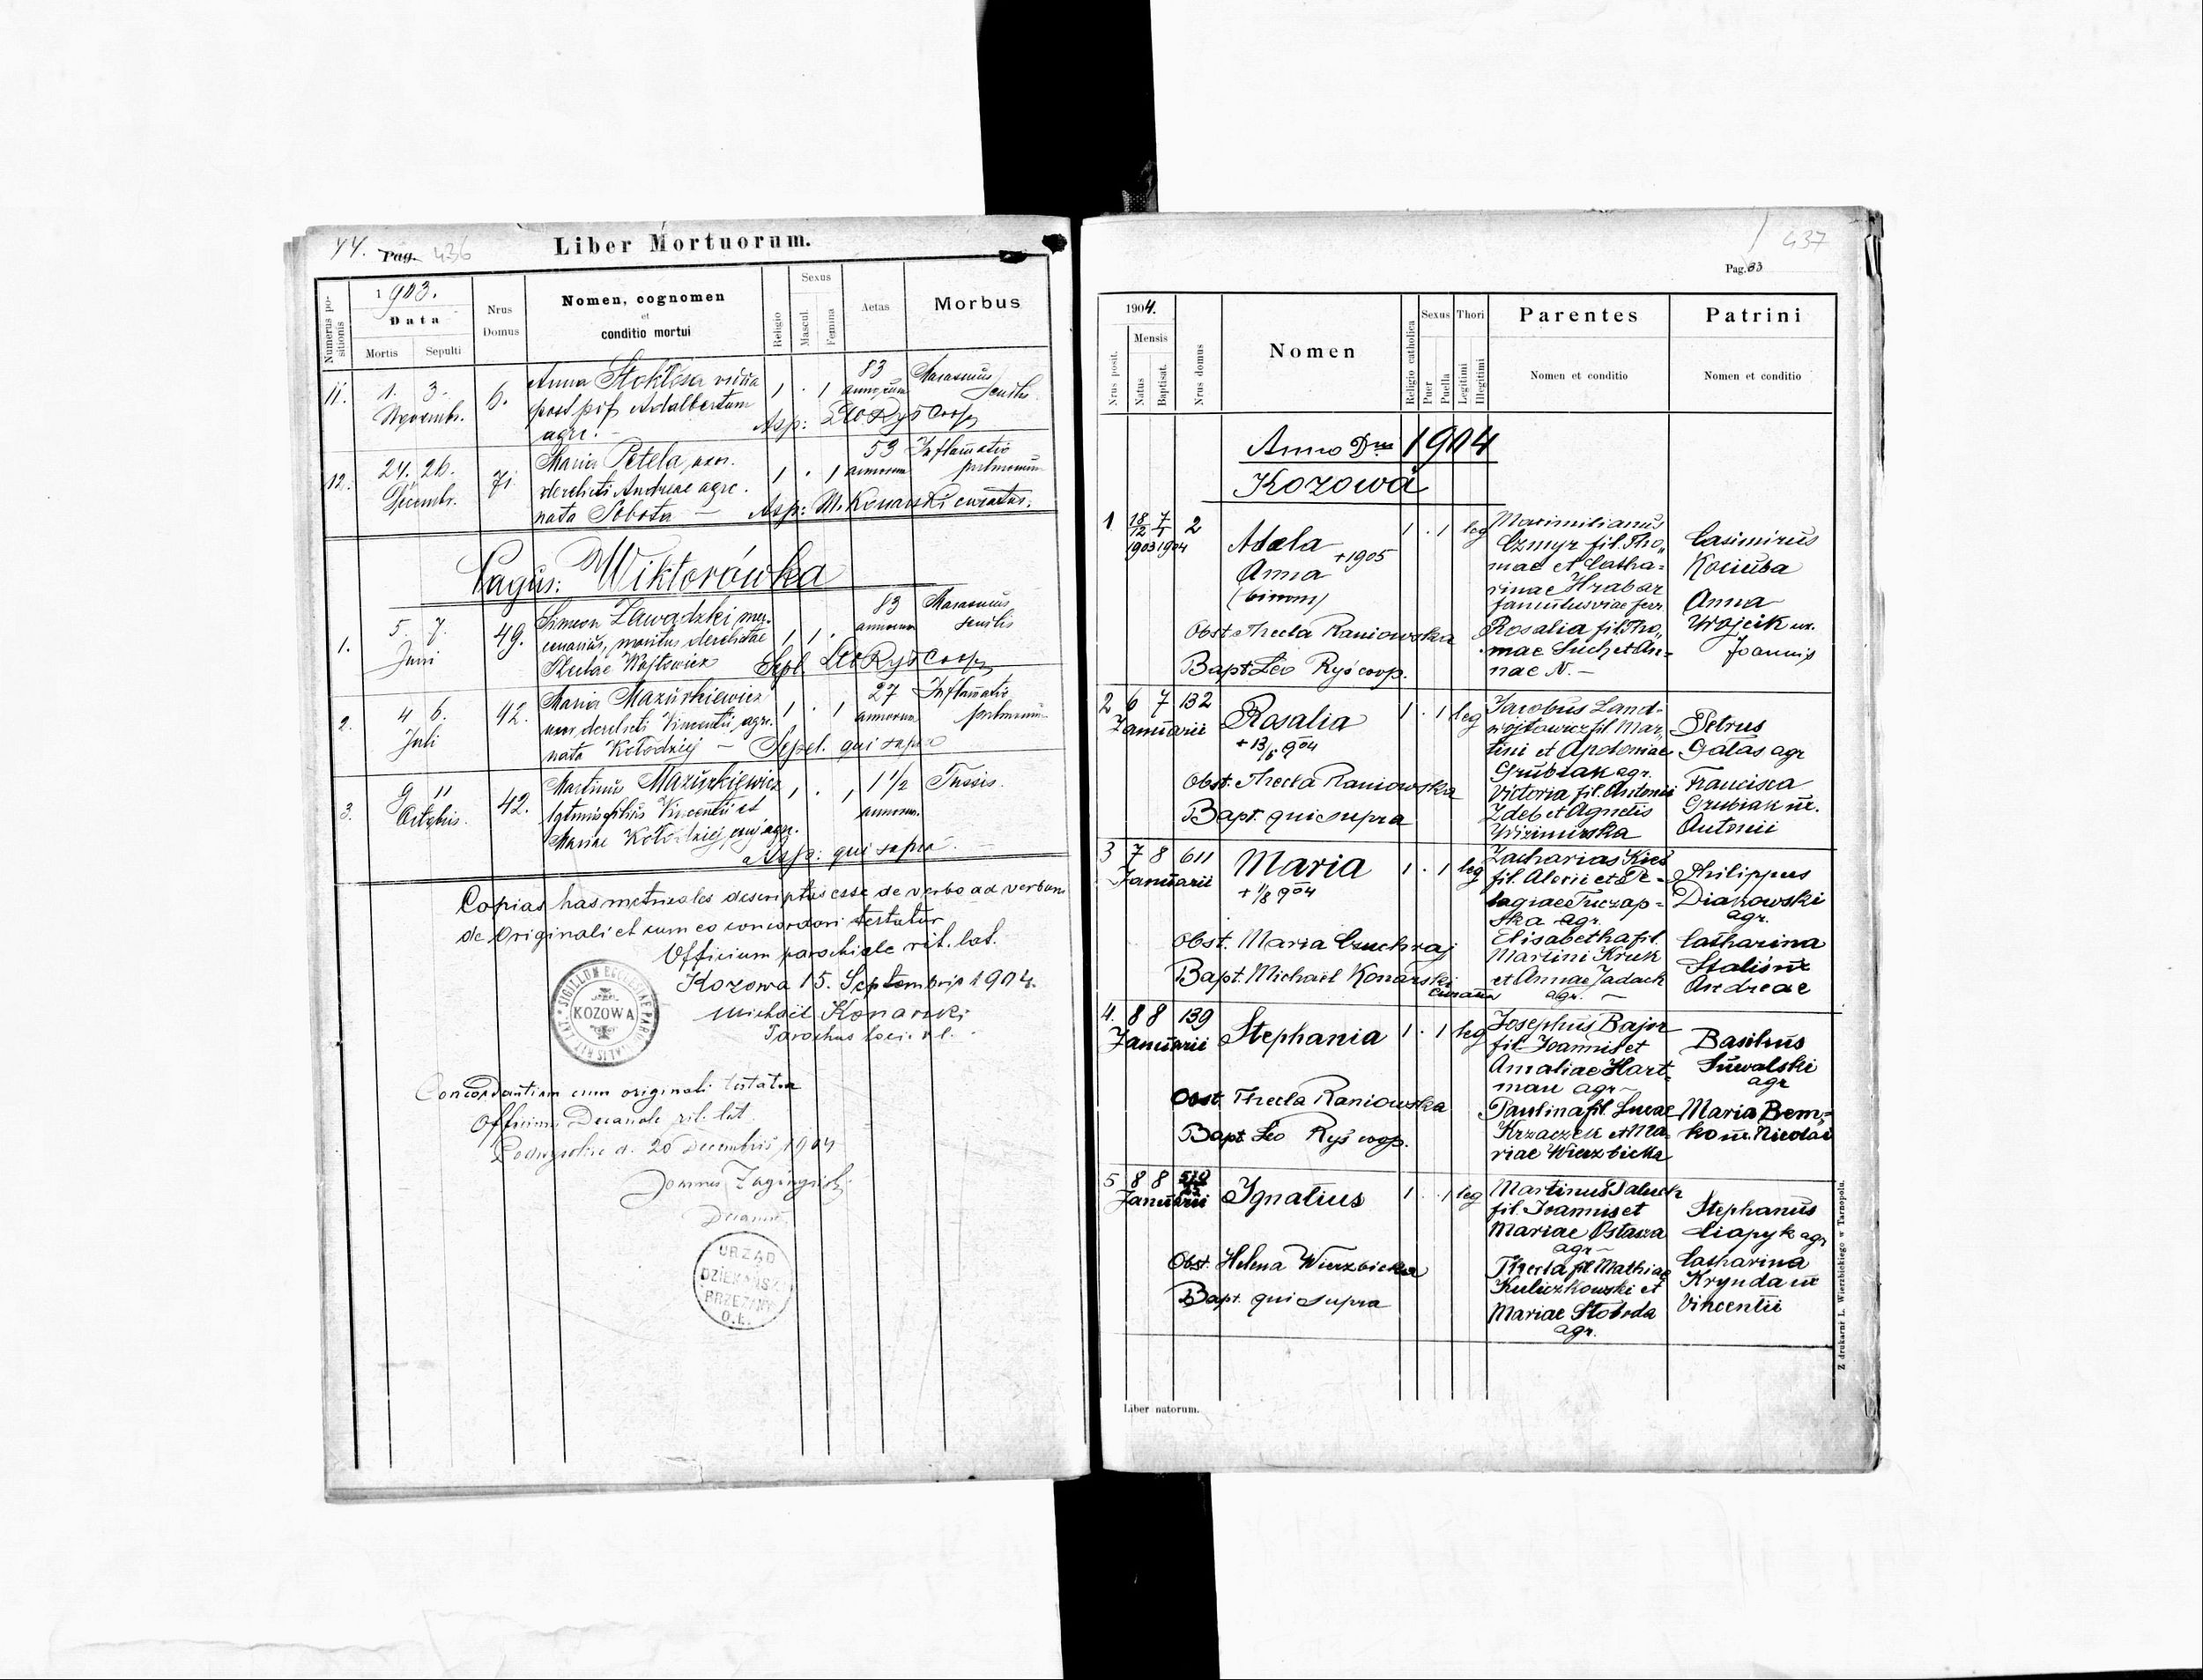 44. Pag. 436
Liber Mortuorum.
Numerus positionis
1903.
Data
Mortis
Sepulti
Nrus Domus
Nomen, cognomen
et
conditio mortui
Religio
Sexus
Mascul.
Femina
Aetas
Morbus
11. 1. 3. 6. Anna Stoklosa vidua 1 . 1 83 Marasmus
Novembr. post p. def. Adalbertum annorum senilis
agri. – Asp: Leo Ryś Coop
12. 24. 26. 71. Maria Petela, uxor. 1 . 1 53 Inflamatio
Decembr. derelicti Andreae agric. annorum pulmonum
nata Sobota – Asp: M. Konarski curatus.
Pagus: Wiktorówka
1. 5. 7. 49. Simeon Zawadzki mer- 1 1 . 83 Marasmus
Juni cenarius, maritus derelictae annorum senilis
Theclae Wojtowicz Sepl. Leo Ryś Coop
2. 4 6. 42. Maria Mazurkiewicz 1 . 1 27 Inflamatio
Juli uxor derelicti Vincentii, agr. annorum pulmonum
nata Kołodziej – Sepel. qui supra
3. 9 11 42. Martinus Mazurkiewicz 1 . 1 1 1/2 Tussis.
Octobris. lgtmus filius Vincentii et annorum.
Mariae Kołodziej, conj. agr.
Asp: qui supra. –
Copias has metricales descriptas esse de verbo ad verbum
de Originali et cum eo concordari testatur
Officium parochiale rit. lat.
Kozowa 15. Septembris 1904.
Michaël Konarski
Parochus loci. r. l.
SIGILLUM ECCLESIAE PAROCHIALIS RIT. LAT.
KOZOWA
Concordantiam cum originali testatur
Officium Decanale rit. lat
d. 20 Decembris 1904
Joannes
Decanus.
URZĄD
DZIEKAŃSKI
BRZEŻANY
O. Ł.
437
Pag. 33
1904.
Nrus posit.
Mensis
Natus
Baptisat.
Nrus domus
Nomen
Religio catholica
Sexus
Puer
Puella
Thori
Legitimi
Illegitimi
Parentes
Nomen et conditio
Patrini
Nomen et conditio
Anno Dni 1904
Kozowa
1 18/12 1903 7/1 1904 2 Adela 1 . 1 leg Maximilianus Casimirus
Anna +1905 Czmyr fil. Tho„ Kociuba
(binom) mae et Catha= Anna
rinae Hrabar Wojcik ux.
famulus viae ferr. Joannis
Obst. Thecla Raniowska Rosalia fil. Tho„
mae Such et An=
Bapt. Leo Ryś coop. nae N. –
2 6 7 132 Rosalia 1 . 1 leg Jacobus Land- Petrus
Januarii +13/6 904 wójtowicz fil. Mar„ Galas agr
tini et Apoloniae
Grubiak agr. Francisca
Obst. Thecla Raniowska Victoria fil. Antonii Grubiak ux.
Bapt. qui supra Zdeb et Agnetis Antonii
Wizimirska
3 7 8 611 Maria 1 . 1 leg Zacharias Kieś Philippus
Januarii +1/8 904 fil. Alexii et Pe- Diakowski
lagiae Truczap= agr.
ska agr.
Obst. Maria Czuchraj Elisabetha fil. Catharina
Martini Kruk Staliś ux
Bapt. Michael Konarski et Annae Jadack Andreae
curatus agr. –
4. 8 8 139 Stephania 1 . 1 leg Josephus Bajor Basilius
Januarii fil. Joannis et Suwalski
Amaliae Hart- agr
man agr –
Obst. Thecla Raniowska Paulina fil. Lucae Maria Bem-
Bapt. Leo Ryś coop. Krzaczek et Ma- ko ux. Nicolai
riae Wierzbicka
5 8 8 Ignatius 1 . 1 leg Martinus Paluch Stephanus
Januarii fil. Joannis et Ciapyk agr
Mariae Ostasza
agr –
Obst. Helena Wierzbicka Thecla fil. Mathiae Catharina
Kuliczkowski et Krynda ux
Bapt. qui supra Mariae Słoboda Vincentii
agr.
Liber natorum.
Z drukarni L. Wierzbickiego w Tarnopolu.